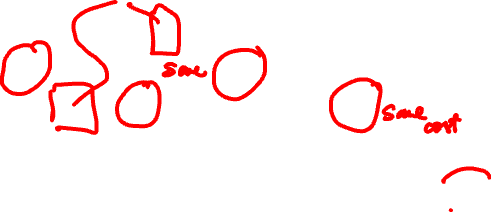 same
same
cost